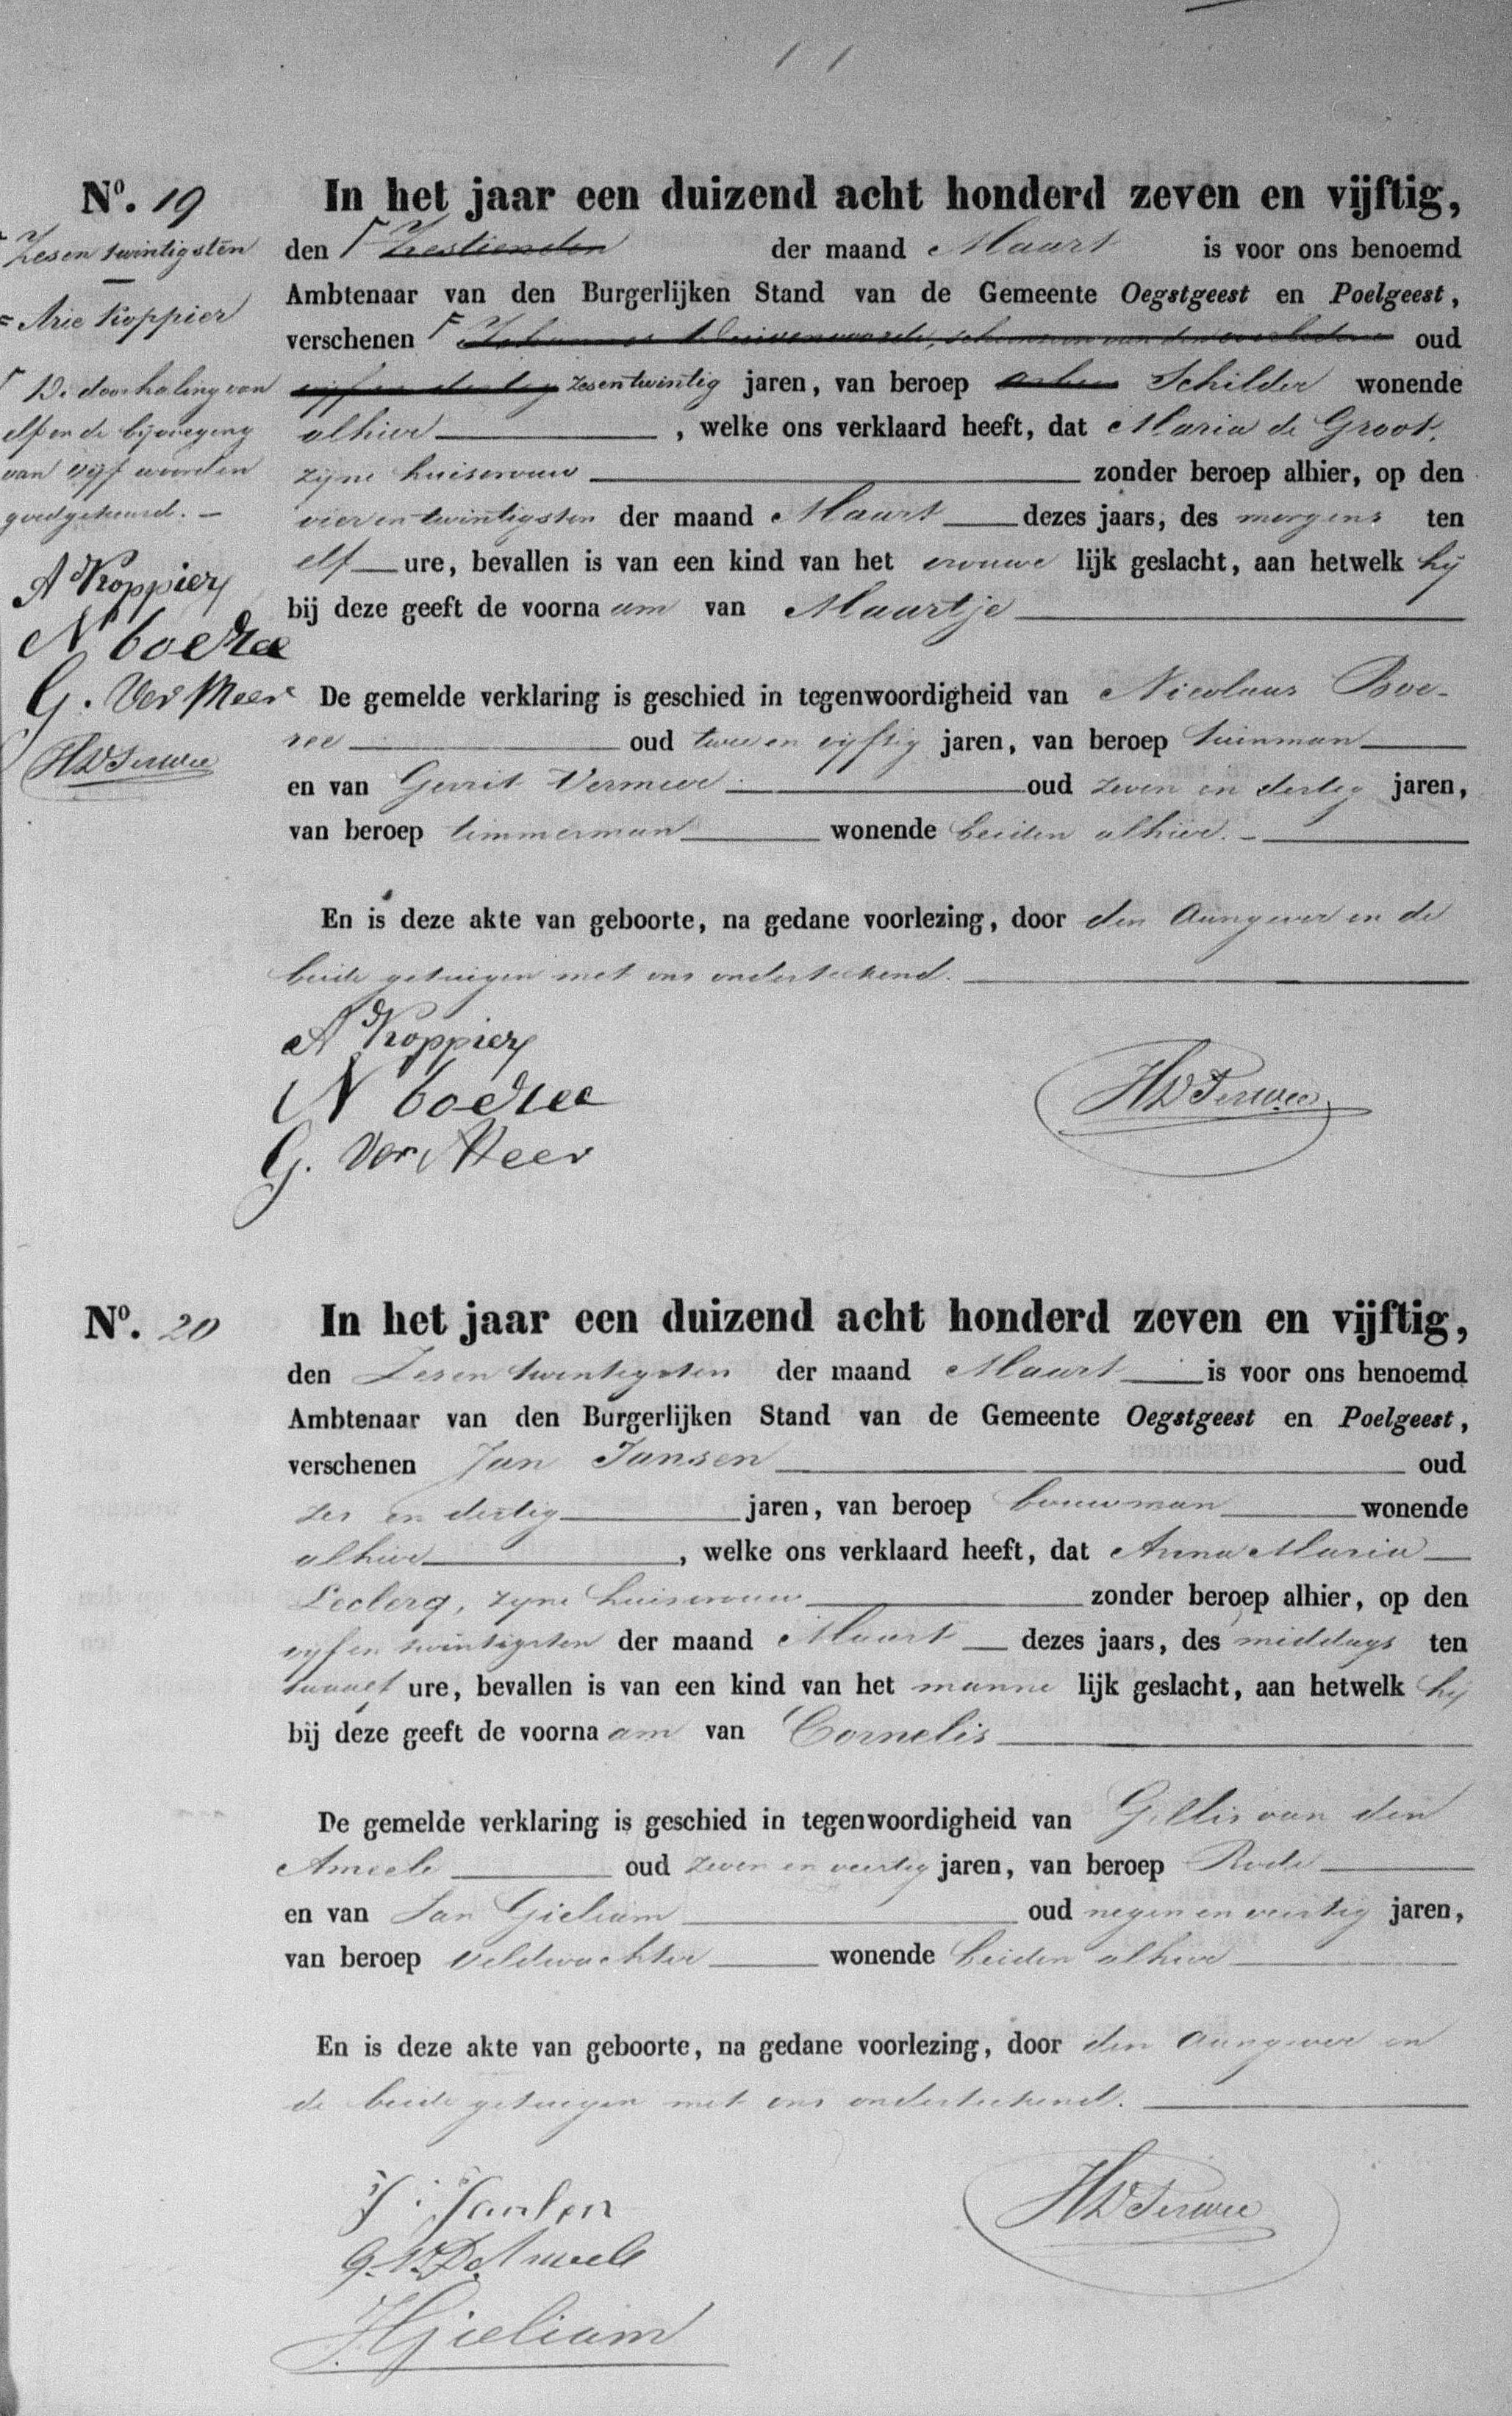 11
Nº. 19
In het jaar een duizend acht honderd zeven en vijftig,
Zesen twintigsten
den Zestienden der maand Maart is voor ons benoemd
Ambtenaar van den Burgerlijken Stand van de Gemeente Oegstgeest en Poelgeest,
= Arie Koppier
verschenen Johannes Duivenvoorde, schoonzoon van den overledene oud
vijf en dertig zesentwintig jaren, van beroep Schilder wonende
De doorhaling van
elf en de bijvoeging
van vijf woorden
goedgekeurd. —
alhier , welke ons verklaard heeft, dat Maria de Groot,
zijne huisvrouw zonder beroep alhier, op den
vier en twintigsten der maand Maart dezes jaars, des morgens ten
elf ure, bevallen is van een kind van het vrouwe lijk geslacht, aan hetwelk hij
bij deze geeft de voorna am van Maartje
A Koppier
N boeree
G. Ver Meer
De gemelde verklaring is geschied in tegenwoordigheid van Nicolaas Boe-
ree oud twee en vijftig jaren, van beroep tuinman
en van Gerrit Vermeer oud zeven en dertig jaren,
van beroep timmerman wonende beiden alhier.
En is deze akte van geboorte, na gedane voorlezing, door den aangever en de
beide getuigen met ons onderteekend.
A Koppier
N boeree
G. Ver Meer
Nº. 20
In het jaar een duizend acht honderd zeven en vijftig,
den Zesen twintigsten der maand Maart is voor ons benoemd
Ambtenaar van den Burgerlijken Stand van de Gemeente Oegstgeest en Poelgeest,
verschenen Jan Jansen oud
zes en dertig jaren, van beroep bouwman wonende
alhier , welke ons verklaard heeft, dat Anna Maria
Leclerq, zyne huisvrouw zonder beroep alhier, op den
vyf en twintigsten der maand Maart dezes jaars, des middags ten
twaalf ure, bevallen is van een kind van het manne lijk geslacht, aan hetwelk hij
bij deze geeft de voorna am van Cornelis
De gemelde verklaring is geschied in tegenwoordigheid van Gillis van den
Ameele oud zeven en veertig jaren, van beroep Bode
en van Jan Gieliam oud negen en veertig jaren,
van beroep Veldwachter wonende beiden alhier
En is deze akte van geboorte, na gedane voorlezing, door den aangever en
de beide getuigen met ons onderteekend.
J. Jansen
G. V. D. Ameele
J. Gieliam